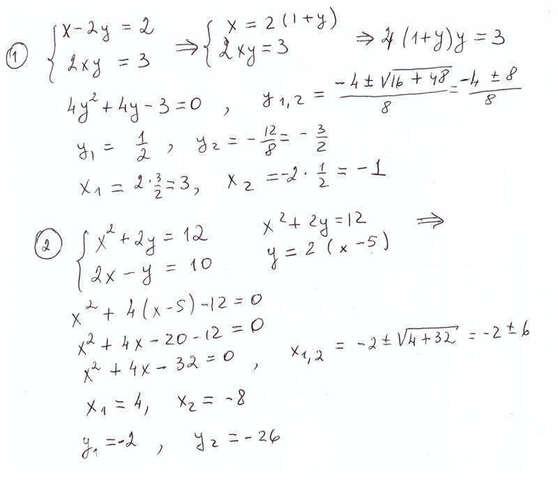 ① { x - 2y = 2 ⇒ { x = 2(1+y) ⇒ 4(1+y)y = 3
{ 2xy = 3 { 2xy = 3
4y² + 4y - 3 = 0 , y₁,₂ = (-4 ± √(16 + 48))/8 = (-4 ± 8)/8
y₁ = 1/2 , y₂ = -12/8 = -3/2
x₁ = 2·3/2 = 3, x₂ = -2·1/2 = -1
② { x² + 2y = 12 x² + 2y = 12 ⇒
{ 2x - y = 10 y = 2(x-5)
x² + 4(x-5) - 12 = 0
x² + 4x - 20 - 12 = 0
x² + 4x - 32 = 0 , x₁,₂ = -2 ± √(4+32) = -2 ± 6
x₁ = 4, x₂ = -8
y₁ = -2 , y₂ = -26